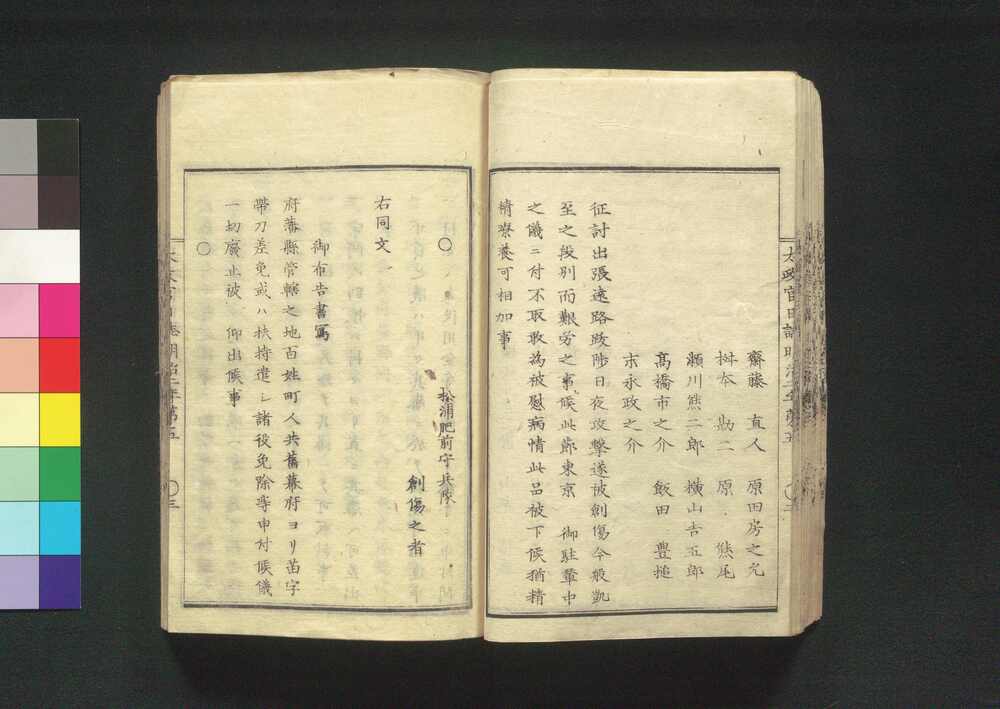 齋藤　直人　原田房之允
桝本　勘二　原　熊尾
瀬川熊二郎　横山吉五郎
髙橋市之介　飯田　豊搥
末永政之介
征討出張遠路跋渉日夜攻撃遂被創傷今般凱
至之段別而艱労之事候此節東京　御駐輦中
之儀ニ付不取敢為被慰病情此品被下候猶精
精療養可相加事
〇
松浦肥前守兵隊
創傷之者
右同文
御布告書寫
府藩縣管轄之地百姓町人共舊幕府ヨリ苗字
帶刀差免或ハ扶持遣シ諸役免除等申付候儀
一切廢止被　仰出候事
〇
太政官日誌明治二年第五